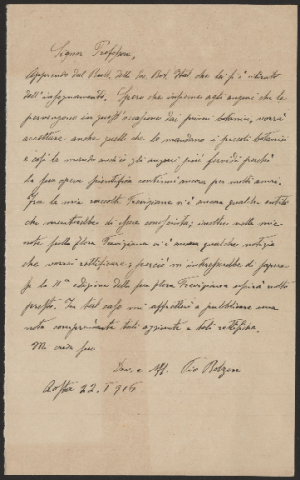 Signor Professore,
Apprendo dal Boll. della Soc. Bot. Ital. che Ella si è ritirato
dall'insegnamento. Spero che insieme agli auguri che le
pervengono in quest'occasione dai primi botanici, vorrà
accettare anche quelli che le mandano i piccoli botanici
e così le mando anch'io gli auguri più fervidi perchè
la sua opera scientifica continui ancora per molti anni.
Fra le mie raccolte Trevigiane vi è ancora qualche entità
che meriterebbe di essere conosciuta; inoltre nelle mie
note sulla flora Trevigiana vi è ancora qualche notizia
che vorrei rettificare; perciò mi interesserebbe di sapere
se la IIª edizione della sua flora Trevigiana uscirà molto
presto. In tal caso mi affretterei a pubblicare una
nota comprendente tali aggiunte e tali rettifiche.
Mi creda suo
Dev. e Aff. Pio Bolzon
Aosta 22. I 916